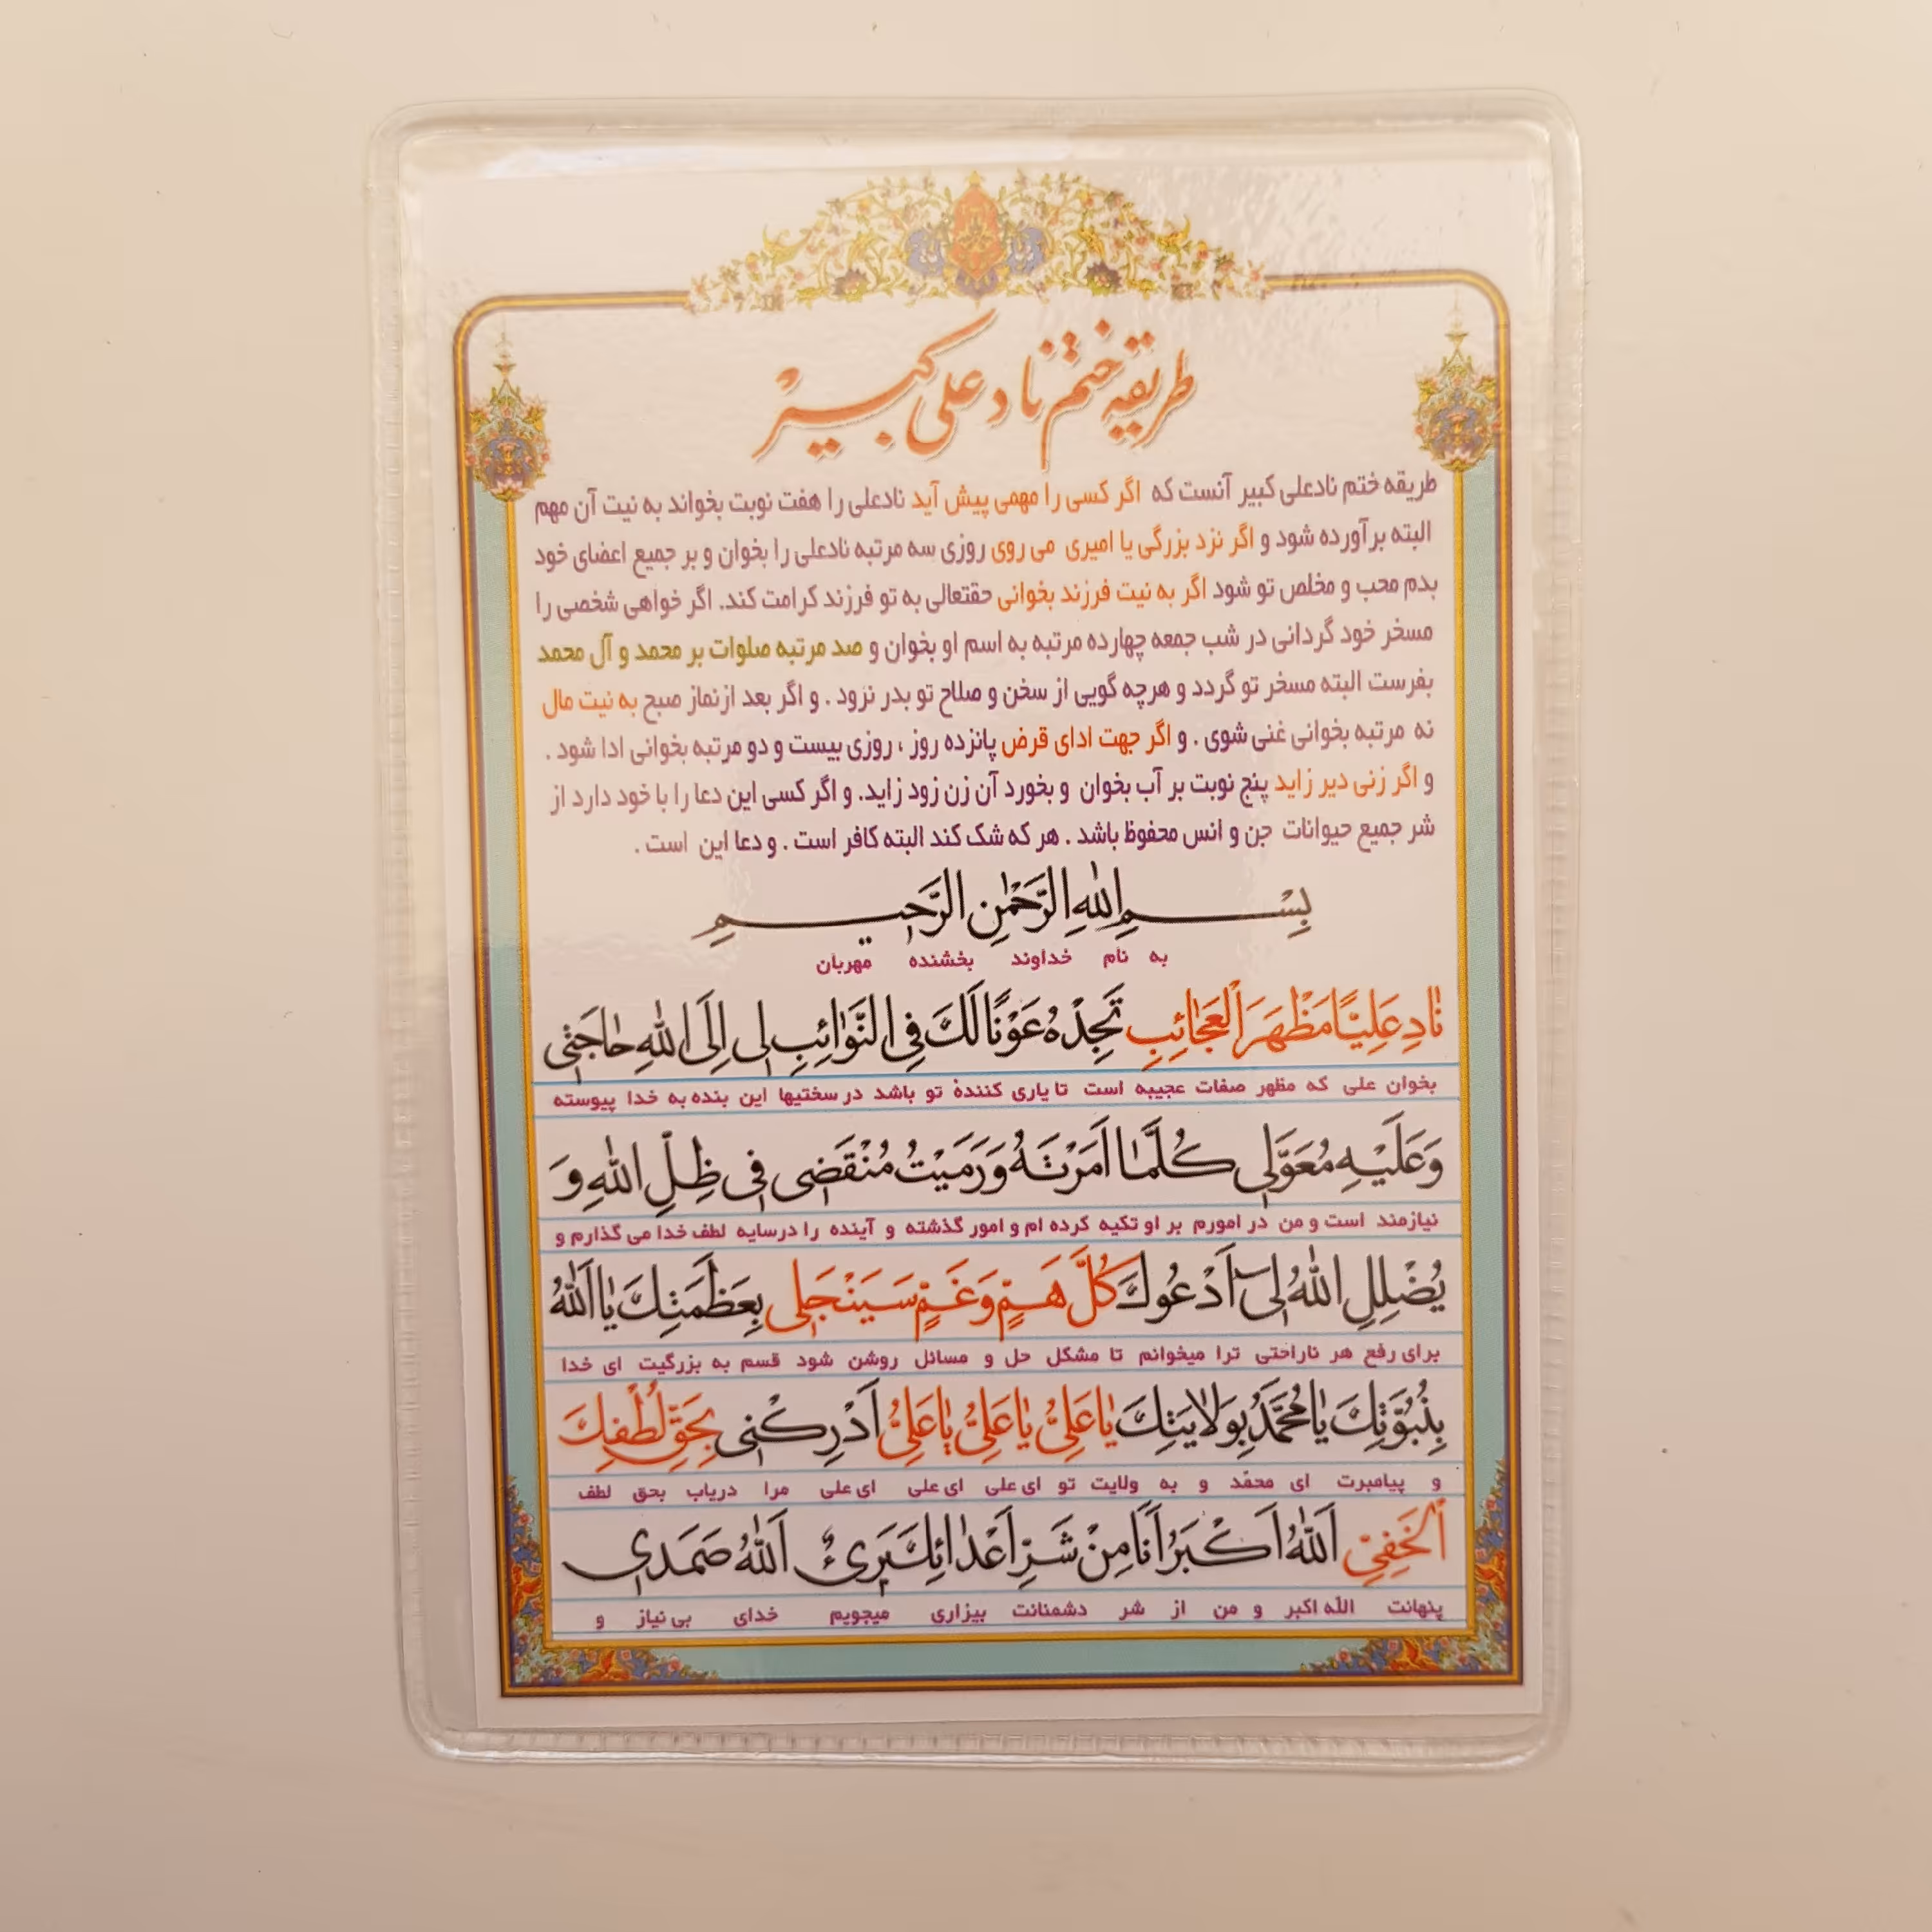 طریقه ختم ناد علی کبیر
طریقه ختم نادعلی کبیر آنست که اگر کسی را مهمی پیش آید نادعلی را هفت نوبت بخواند به نیت آن مهم
البته برآورده شود و اگر نزد بزرگی یا امیری می روی روزی سه مرتبه نادعلی را بخوان و بر جمیع اعضای خود
بدم محب و مخلص تو شود اگر به نیت فرزند بخوانی حقتعالی به تو فرزند کرامت کند. اگر خواهی شخصی را
مسخر خود گردانی در شب جمعه چهارده مرتبه به اسم او بخوان و صد مرتبه صلوات بر محمد و آل محمد
بفرست البته مسخر تو گردد و هرچه گویی از سخن و صلاح تو بدر نرود . و اگر بعد ازنماز صبح به نیت مال
نه مرتبه بخوانی غنی شوی . و اگر جهت ادای قرض پانزده روز ، روزی بیست و دو مرتبه بخوانی ادا شود .
و اگر زنی دیر زاید پنج نوبت بر آب بخوان و بخورد آن زن زود زاید. و اگر کسی این دعا را با خود دارد از
شر جمیع حیوانات جن و انس محفوظ باشد . هر که شک کند البته کافر است . و دعا این است .
بِسْمِ اللهِ الرَّحْمٰنِ الرَّحیمِ
به نام خداوند بخشنده مهربان
نٰادِ عَلِیًّا مَظْهَرَ الْعَجٰائِبِ تَجِدْهُ عَوْنًا لَكَ فِی النَّوٰائِبِ لی اِلَی اللهِ حٰاجَتی
بخوان علی که مظهر صفات عجیبه است تا یاری کنندهٔ تو باشد در سختیها این بنده به خدا پیوسته
وَعَلَیْهِ مُعَوَّلی كُلَّمٰا اَمَرْتَهُ وَرَمَیْتُ مُنْقَضی فی ظِلِّ اللهِ وَ
نیازمند است و من در امورم بر او تکیه کرده ام و امور گذشته و آینده را درسایه لطف خدا می گذارم و
یُضْلِلِ اللهُ لی اَدْعُوكَ كُلَّ هَمٍّ وَغَمٍّ سَیَنْجَلی بِعَظَمَتِكَ یٰا اَللهُ
برای رفع هر ناراحتی ترا میخوانم تا مشکل حل و مسائل روشن شود قسم به بزرگیت ای خدا
بِنُبُوَّتِكَ یٰا مُحَمَّدُ بِوَلایَتِكَ یٰا عَلِیُّ یٰا عَلِیُّ یٰا عَلِیُّ اَدْرِكْنی بِحَقِّ لُطْفِكَ
و پیامبرت ای محمّد و به ولایت تو ای علی ای علی ای علی مرا دریاب بحق لطف
الْخَفِیِّ اَللهُ اَكْبَرُ اَنَا مِنْ شَرِّ اَعْدٰائِكَ بَریءٌ اَللهُ صَمَدی
پنهانت الله اکبر و من از شر دشمنانت بیزاری میجویم خدای بی نیاز و